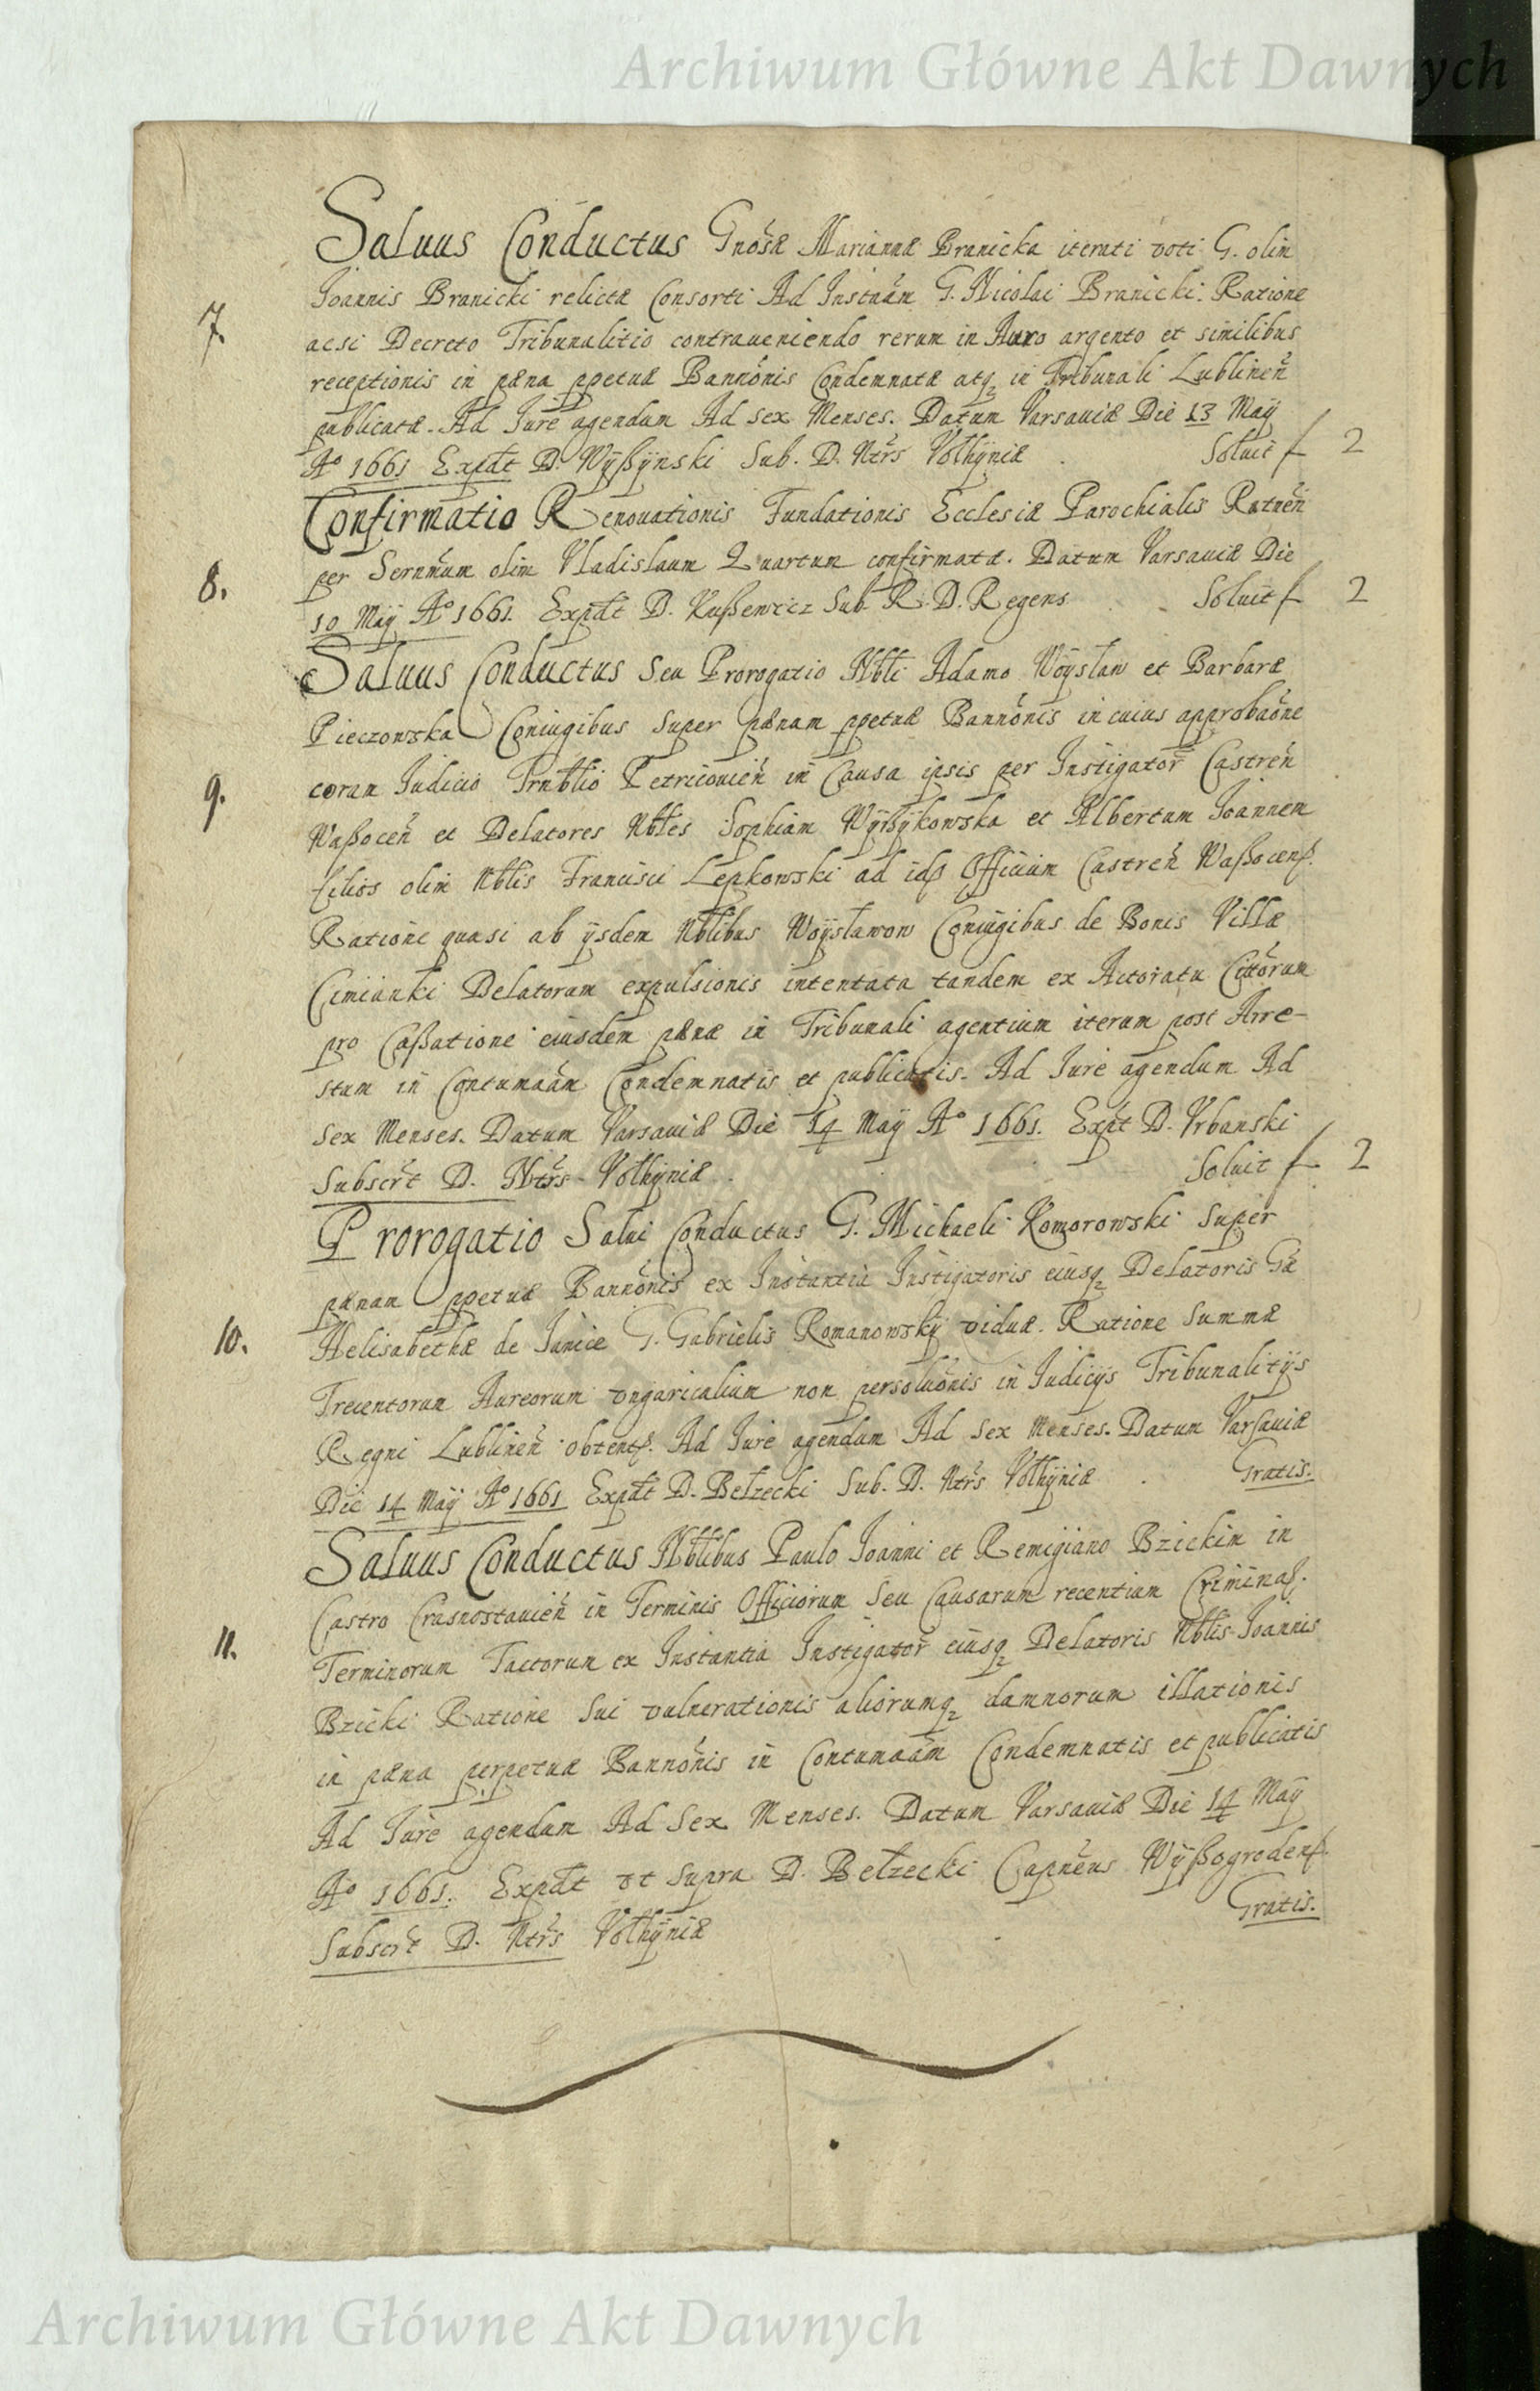 Archiwum Główne Akt Dawnych
Saluus Conductus Gnosæ Mariannæ Branicka iterati voti G. olim
Joannis Branicki relictæ Consorti Ad Instnām G. Nicolai Branicki. Ratione
7. acsi Decreto Tribunalitio contraueniendo rerum in Auro argento et similibus
receptionis in pæna ppetuæ Bannōnis Condemnatæ atq in Tribunali Lublineñ
publicatæ. Ad Jure agendum Ad sex Menses. Datum Varsaviæ Die 13 Maÿ
Aº 1661 Expdt D. Wÿßÿnski Sub. D. Ntrs Volhÿniæ Soluit f 2
Confirmatio Renouationis Fundationis Ecclesiæ Parochialis Ratneñ
8. per Sernmum olim Vladislaum Quartum confirmatæ. Datum Varsaviæ Die
10 Maÿ Aº 1661. Expdt D. Kußewicz Sub R. D. Regens Soluit f 2
Saluus Conductus Seu Prorogatio Nbli Adamo Woÿsław et Barbaræ
Pieczowska Coniugibus super pænam ppetuæ Bannōnis in cuius approbaōne
9. coram Judicio Trnblio Petricouieñ in Causa ipsis per Instigator Castreñ
Waßoceñ et Delatores Nbles Sophiam Wÿßÿkowska et Albertum Joannem
filios olim Nblis Francisci Lepkowski ad idß Officium Castreñ Waßocenß.
Ratione quasi ab ÿsdem Nblibus Woÿsławow Coniugibus de Bonis Villæ
Cimianki Delatorum expulsionis intentata tandem ex Actoratu Citōrum
pro Caßatione eiusdem pænæ in Tribunali agentium iterum post Arre-
stum in Contumaām Condemnatis et publicatis. Ad Jure agendum Ad
sex Menses. Datum Varsaviæ Die 14 Maÿ Aº 1661. Expt D. Vrbanski
Subscrt D. Ntrs Volhÿniæ Soluit f 2
Prorogatio Salui Conductus G. Michaeli Komorowski super
pænam ppetuæ Bannōnis ex Instantia Instigatoris eiusq Delatoris Gæ
10. Helisabethæ de Janice G. Gabrielis Romanowskÿ viduæ. Ratione summæ
Trecentorum Aureorum vngaricalium non persoluōnis in Judicÿs Tribunalitÿs
Regni Lublineñ obtentß. Ad Jure agendum Ad sex Menses. Datum Varsaviæ
Die 14 Maÿ Aº 1661 Expdt D. Bełzecki Sub. D. Ntrs Volhÿniæ Gratis.
Saluus Conductus Nblibus Paulo Joanni et Remigiano Bzickim in
Castro Crasnostauieñ in Terminis Officiorum seu Causarum recentium Criminaß.
11. Terminorum Tactorum ex Instantia Instigator eiusq Delatoris Nblis Joannis
Bzicki Ratione sui vulnerationis aliorumq damnorum illationis
in pæna perpetuæ Bannōnis in Contumaām Condemnatis et publicatis
Ad Jure agendum Ad sex Menses. Datum Varsaviæ Die 14 Maÿ
Aº 1661. Expdt vt supra D. Bełzecki Capneus Wÿßogrodenß.
Subscrt D. Ntrs Volhÿniæ Gratis.
Archiwum Główne Akt Dawnych